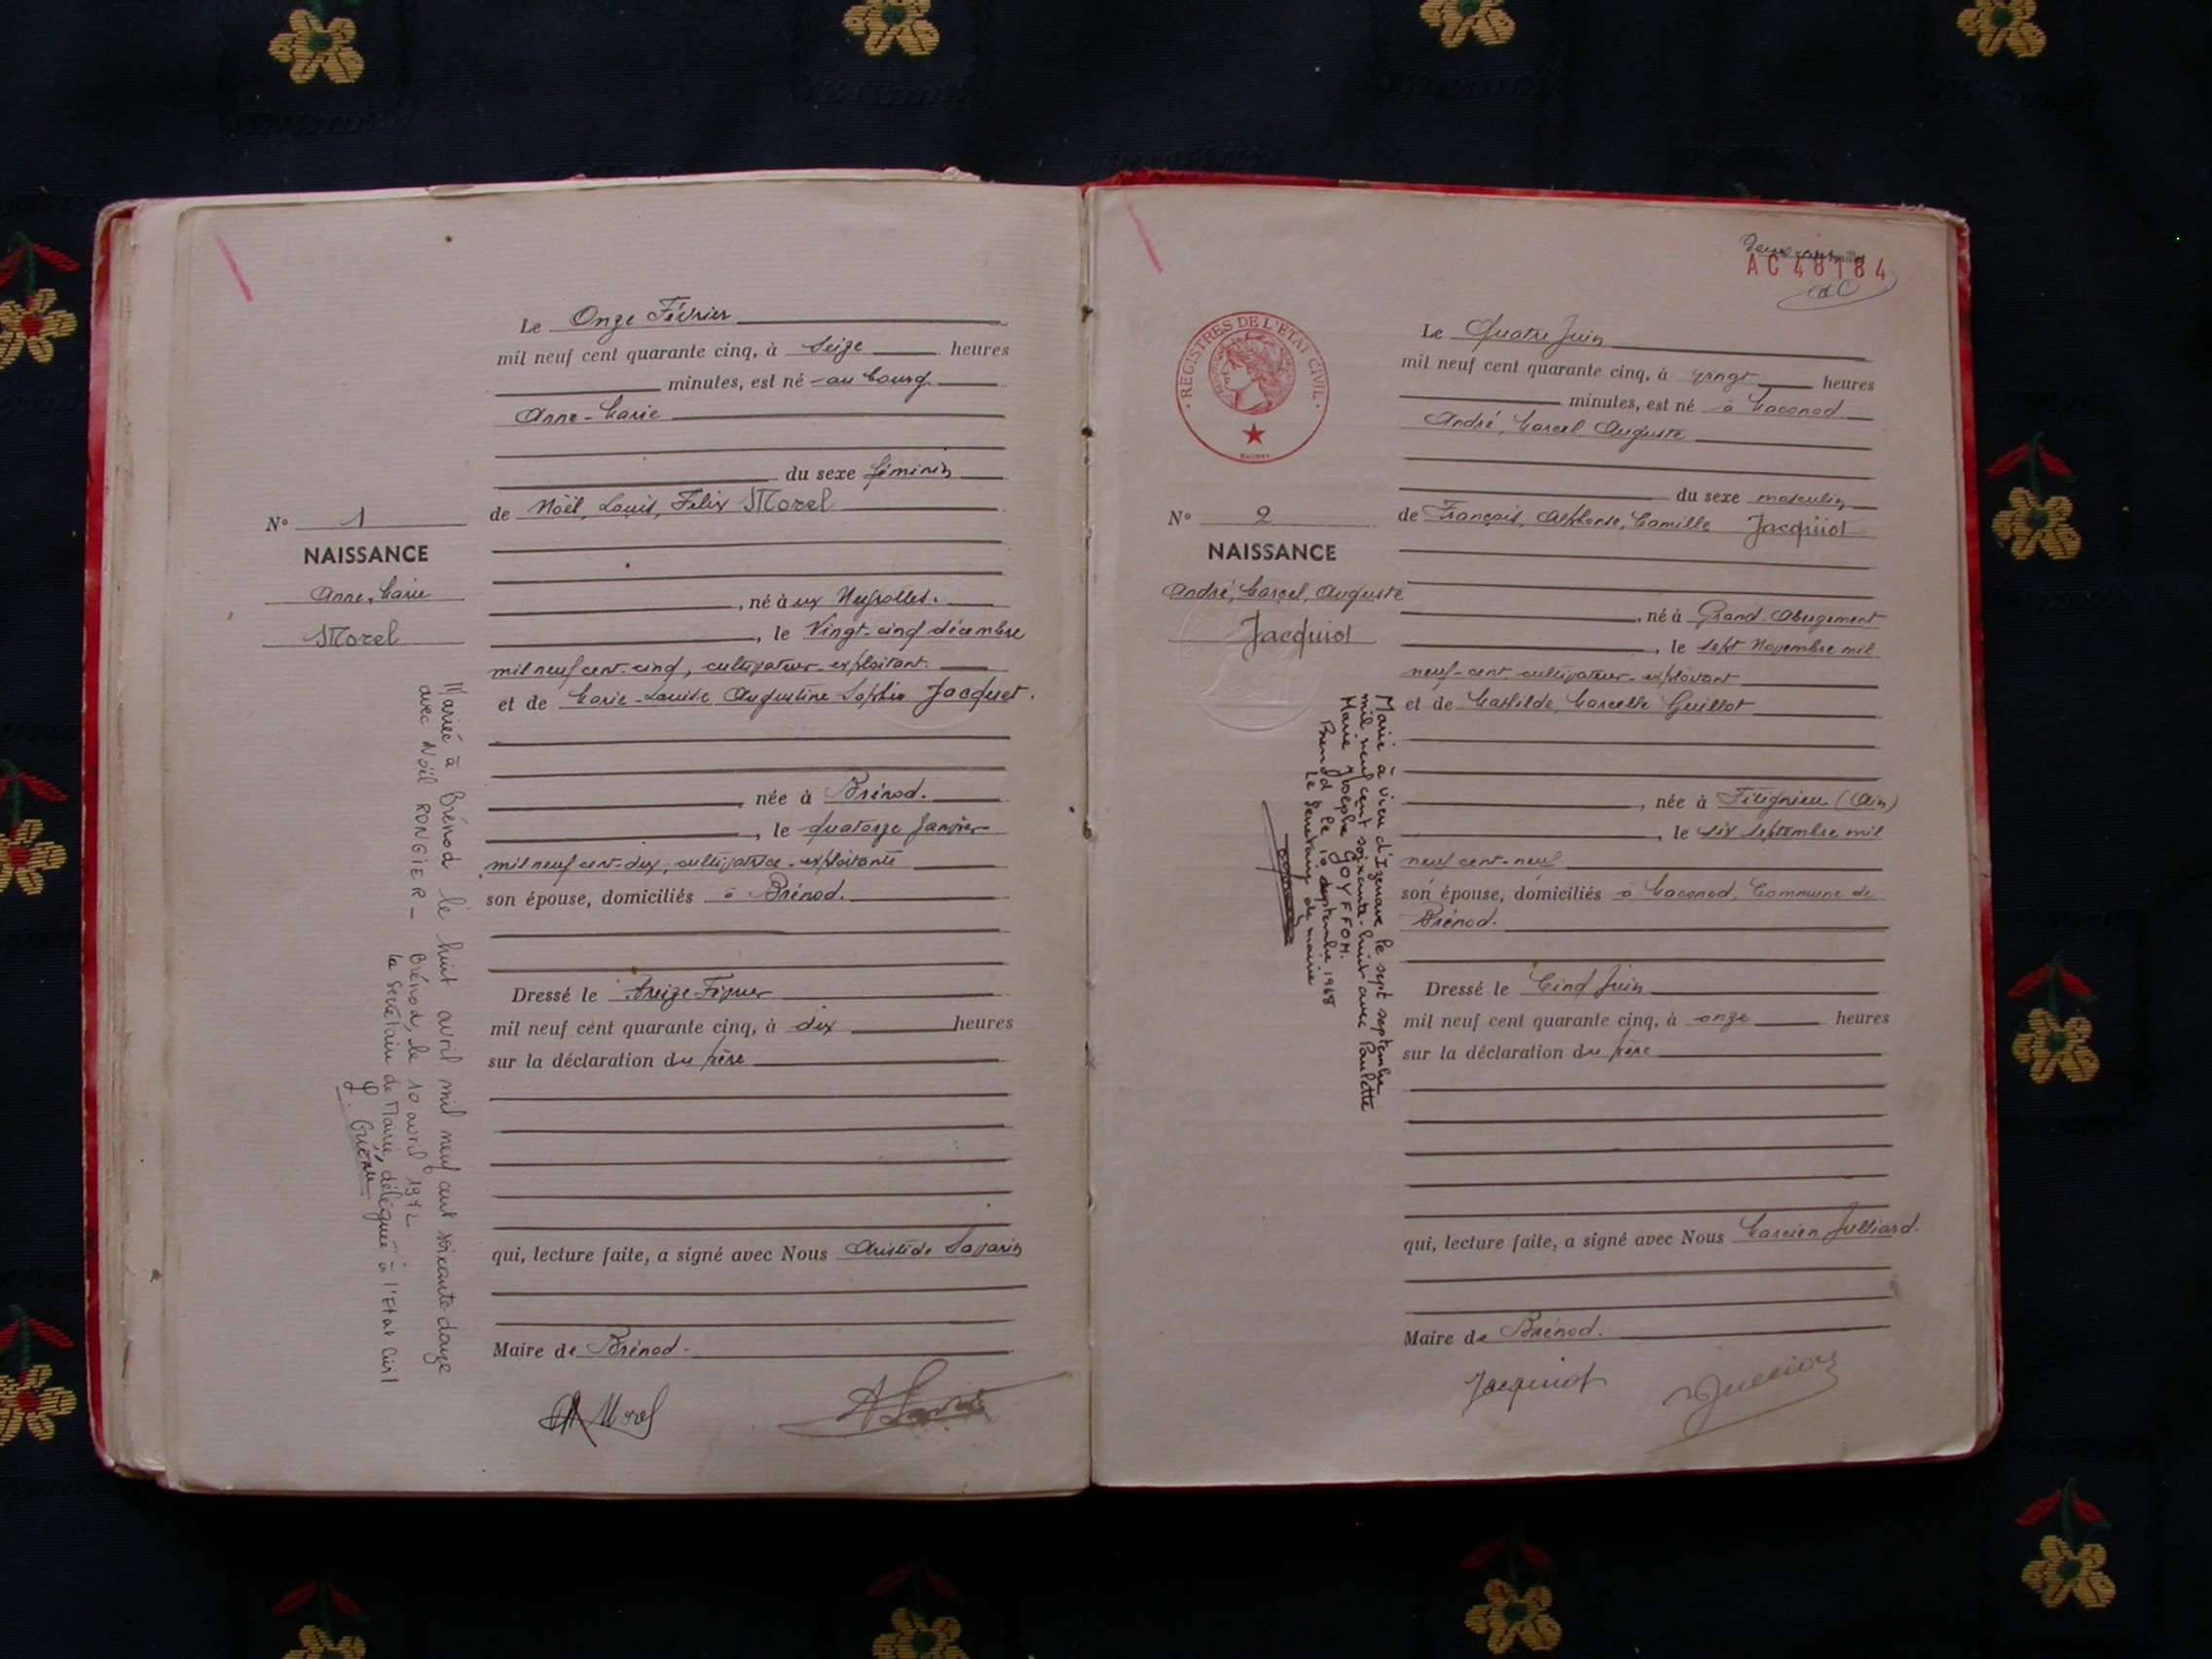 Le Onze Février
mil neuf cent quarante cinq, à seize heures
minutes, est né au bourg
Anne-Marie
du sexe féminin
de Noël, Louis, Félix Morel
né à ux Neyrolles.
, le Vingt-cinq décembre
mil neuf cent-cinq, cultivateur-exploitant.
et de Marie-Louise Augustine Sophie Jacquet.
née à Brénod.
, le quatorze Janvier
mil neuf cent-dix, cultivatrice-exploitante
son épouse, domiciliés à Brénod.
Dressé le Treize-Février
mil neuf cent quarante cinq, à dix heures
sur la déclaration du père
qui, lecture faite, a signé avec Nous Aristide Savarin
Maire de Brénod.
Morel
N° 1
NAISSANCE
Anne, Marie
Morel
Mariée à Brénod le huit avril mil neuf cent soixante douze
avec Noël RONGIER - Brénod, le 10 avril 1972
la secrétaire de Mairie, déléguée à l'Etat Civil
AC 48184
REGISTRES DE L'ETAT CIVIL
Le Quatre Juin
mil neuf cent quarante cinq, à vingt heures
minutes, est né à Maconod
André, Marcel, Auguste
du sexe masculin,
de François, Alphonse, Camille Jacquiot
, né à Grand Abergement
, le sept Novembre mil
neuf-cent cultivateur-exploitant
et de Mathilde, Marcelle Guillot
, née à Vieu-d'Izenave (Ain)
, le six septembre mil
neuf cent-neuf
son épouse, domiciliés à Maconod, Commune de
Brénod.
Dressé le Cinq Juin
mil neuf cent quarante cinq, à onze heures
sur la déclaration du père
qui, lecture faite, a signé avec Nous Marcien Julliard.
Maire de Brénod.
Jacquiot
N° 2
NAISSANCE
André, Marcel, Auguste
Jacquiot
Marié à Vieu d'Izenave le sept septembre
mil neuf cent soixante-huit avec Paulette
Marie Josèphe GOYFFON.
Brénod le 10 septembre 1968
Le Secrétaire de mairie